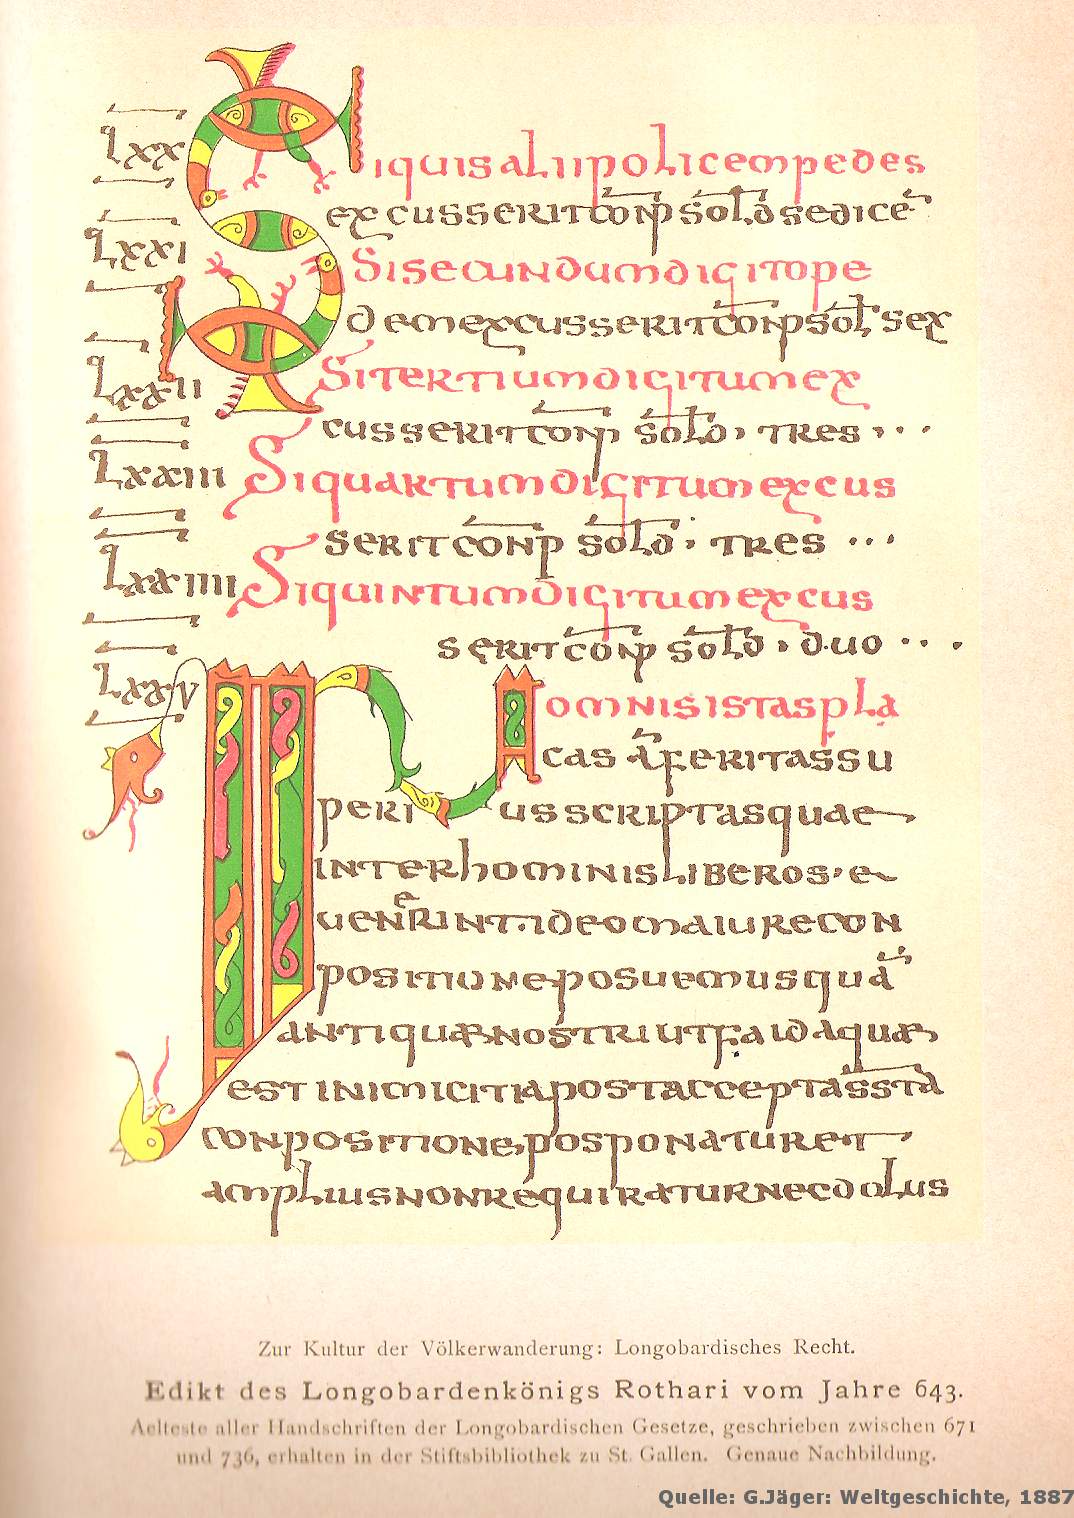 Lxx Siquis alii policem pedes
excusserit conp sold sedice
Lxxi Si secundum digito pe
dem excusserit conp sol sex
Lxxii Si tertium digitum ex
cusserit conp sold, tres, . . .
Lxxiii Si quartum digitum excus
serit conp sold, tres . . .
Lxxiiii Si quintum digitum excus
serit conp sold, duo . . . .
Lxxv In omnis istas pla
cas feritas su
perius scriptas quae
inter hominis liberos, e
uenerint ideo maiure con
positione posuemus qua
antiquæ nostri ut faida quæ
est inimicitia post acceptas sta
conpositione, posponatur et
amplius non requiratur nec dolus
Zur Kultur der Völkerwanderung: Longobardisches Recht.
Edikt des Longobardenkönigs Rothari vom Jahre 643.
Aelteste aller Handschriften der Longobardischen Gesetze, geschrieben zwischen 671
und 736, erhalten in der Stiftsbibliothek zu St. Gallen. Genaue Nachbildung.
Quelle: G.Jäger: Weltgeschichte, 1887